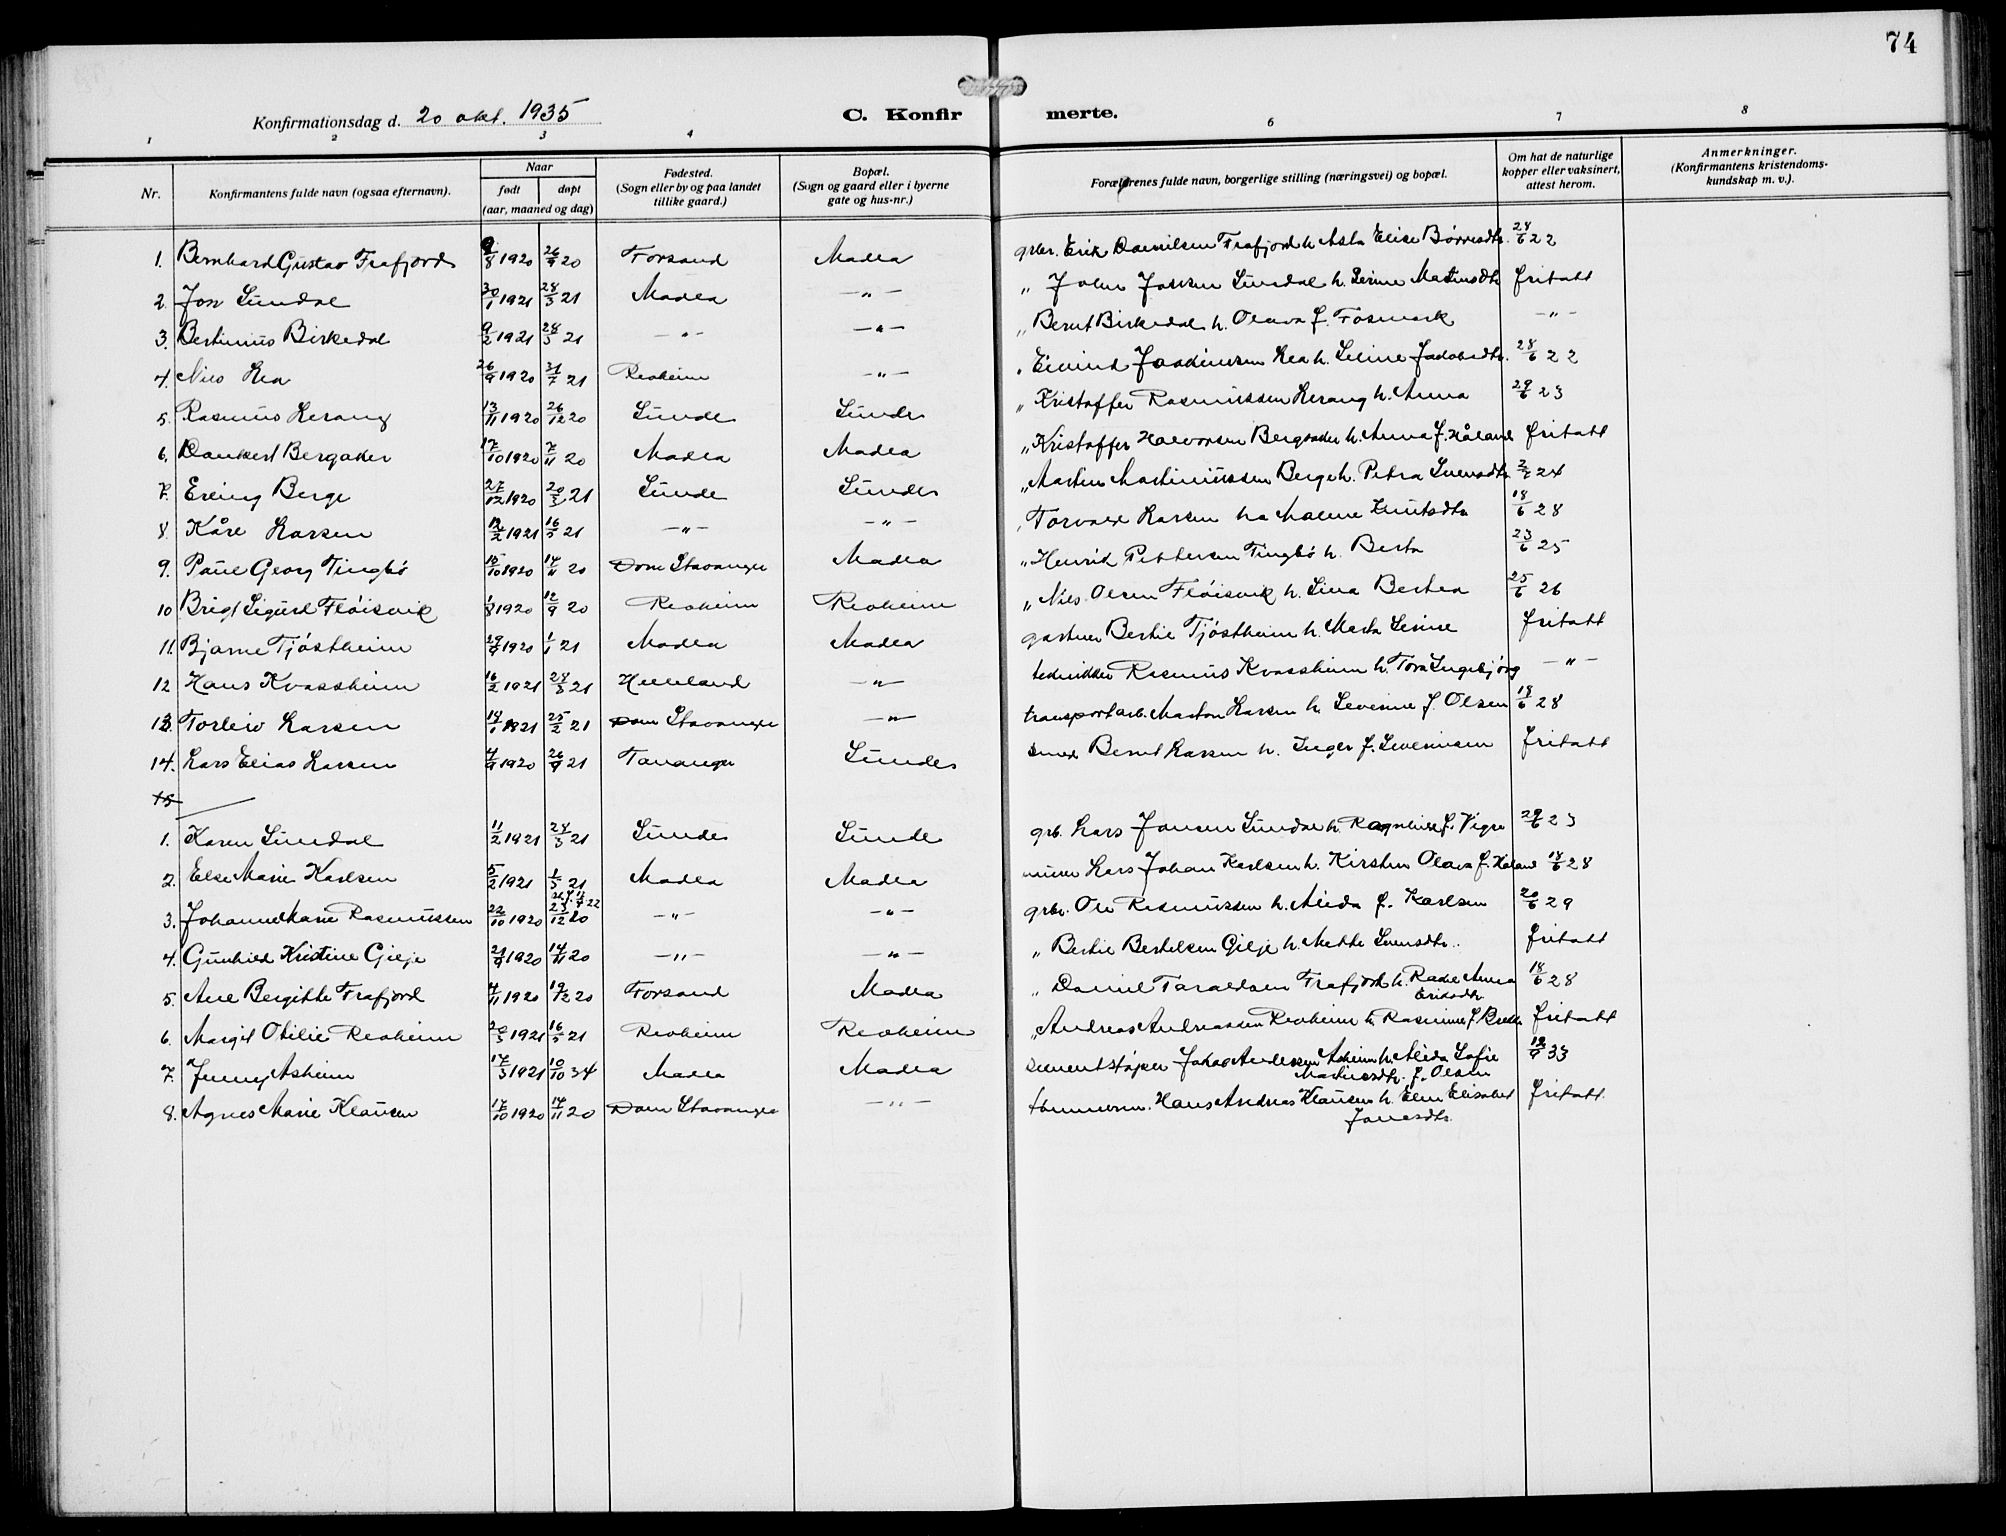 74
Konfirmationsdag d. 20 okt. 1935
C. Konfirmerte.
1 2 3 4 6 7 8
Nr. Konfirmantens fulde navn (ogsaa efternavn). Naar født døpt (aar, maaned og dag) Fødested. (Sogn eller by og paa landet tillike gaard.) Bopæl. (Sogn og gaard eller i byerne gate og hus-nr.) Forældrenes fulde navn, borgerlige stilling (næringsvei) og bopæl. Om hat de naturlige kopper eller vaksinert, attest herom. Anmerkninger. (Konfirmantens kristendoms-kundskap m. v.).
1. Bernhard Gustav Frafjord 9/8 1920 26/9 20 Forsand Madla grbr. Erik Danielsen Frafjord h. Asta Elise Børresdtr. 24/6 22
2. Jon Sundal 30/1 1921 28/3 21 Madla -"- " John Jonsen Sundal h. Serine Martinsdtr fritatt
3. Bertinius Birkedal 9/2 1921 28/3 21 -"- -"- " Bernt Birkedal h. Olava f. Fosmark -"-
4. Nils Rea 26/9 1920 31/7 21 Revheim -"- " Eivind Joakimsen Rea h. Seline Jakobsdtr. 28/6 22
5. Rasmus Lerang 13/11 1920 26/12 20 Sunde Sunde " Kristoffer Rasmussen Lerang h. Anna 29/6 23
6. Dankert Bergaker 17/10 1920 7/11 20 Madla Madla " Kristoffer Halvorsen Bergaker h. Anna f. Håland fritatt
7. Erling Berge 27/12 1920 20/3 21 Sunde Sunde " Martin Martiniussen Berge h. Petra Svensdtr 24
8. Kåre Larsen 12/2 1921 16/5 21 -"- -"- " Torvald Larsen h. Malene Knutsdtr 18/6 28
9. Paul Georg Tingbø 15/10 1920 14/11 20 Dom Stavanger Madla " Henrik Pettersen Tingbø h. Berta 23/6 25
10 Brigt Sigurd Fløisvik 1/8 1920 12/9 20 Revheim Revheim " Nils Olsen Fløisvik h. Sina Bertea 25/6 26
11. Bjarne Tjøstheim 29/9 1920 1/1 21 Madla Madla gartner Bertil Tjøstheim h. Marta Serine fritatt
12 Hans Kvassheim 16/2 1921 28/3 21 Helleland -"- Rasmus Kvassheim h. Tora Ingebjørg -"-
13. Torleiv Larsen 14/1 1921 25/2 21 Dom Stavanger -"- transportarb. Marton Larsen h. Severine f. Olsen 18/6 28
14. Lars Elias Larsen 4/9 1920 26/9 21 Tananger Sunde smed Bernt Larsen h. Inger f. Severinsen fritatt
15
1. Karen Sundal 11/2 1921 24/3 21 Sunde Sunde grb. Lars Jonsen Sundal h. Ragnhild f. Vigre 29/6 23
2. Else Marie Karlsen 5/2 1921 1/5 21 Madla Madla murer Lars Johan Karlsen h. Kirsten Olava f. Haland 18/6 28
3. Johanne Marie Rasmussen 22/10 1920 23/12 20 -"- -"- grbr. Ole Rasmussen h. Alida f. Karlsen 20/6 29
4. Gunhild Kristine Gilje 21/9 1920 14/11 20 -"- -"- " Bertil Bertelsen Gilje h. Mette Svensdtr. fritatt
5. Ane Bergitte Frafjord 4/11 1920 19/12 20 Forsand Madla " Daniel Taraldsen Frafjord h. Rakel Anna Eriksdtr. 18/6 28
6. Margit Otilie Revheim 20/3 1921 16/5 21 Revheim Revheim " Andreas Andreassen Revheim h. Rasmine f. fritatt
7. Jenny Asheim 17/3 1921 10/10 34 Madla Madla sementstøper Johan Andersen Asheim h. Alida Sofie Martinsdtr. f. Olsen 19/9 33
8. Agnes Marie Klausen 17/10 1920 14/11 20 Dom Stavanger -"- tømmerm. Hans Andreas Klausen h. Elen Elisabet Jonasdtr. fritatt